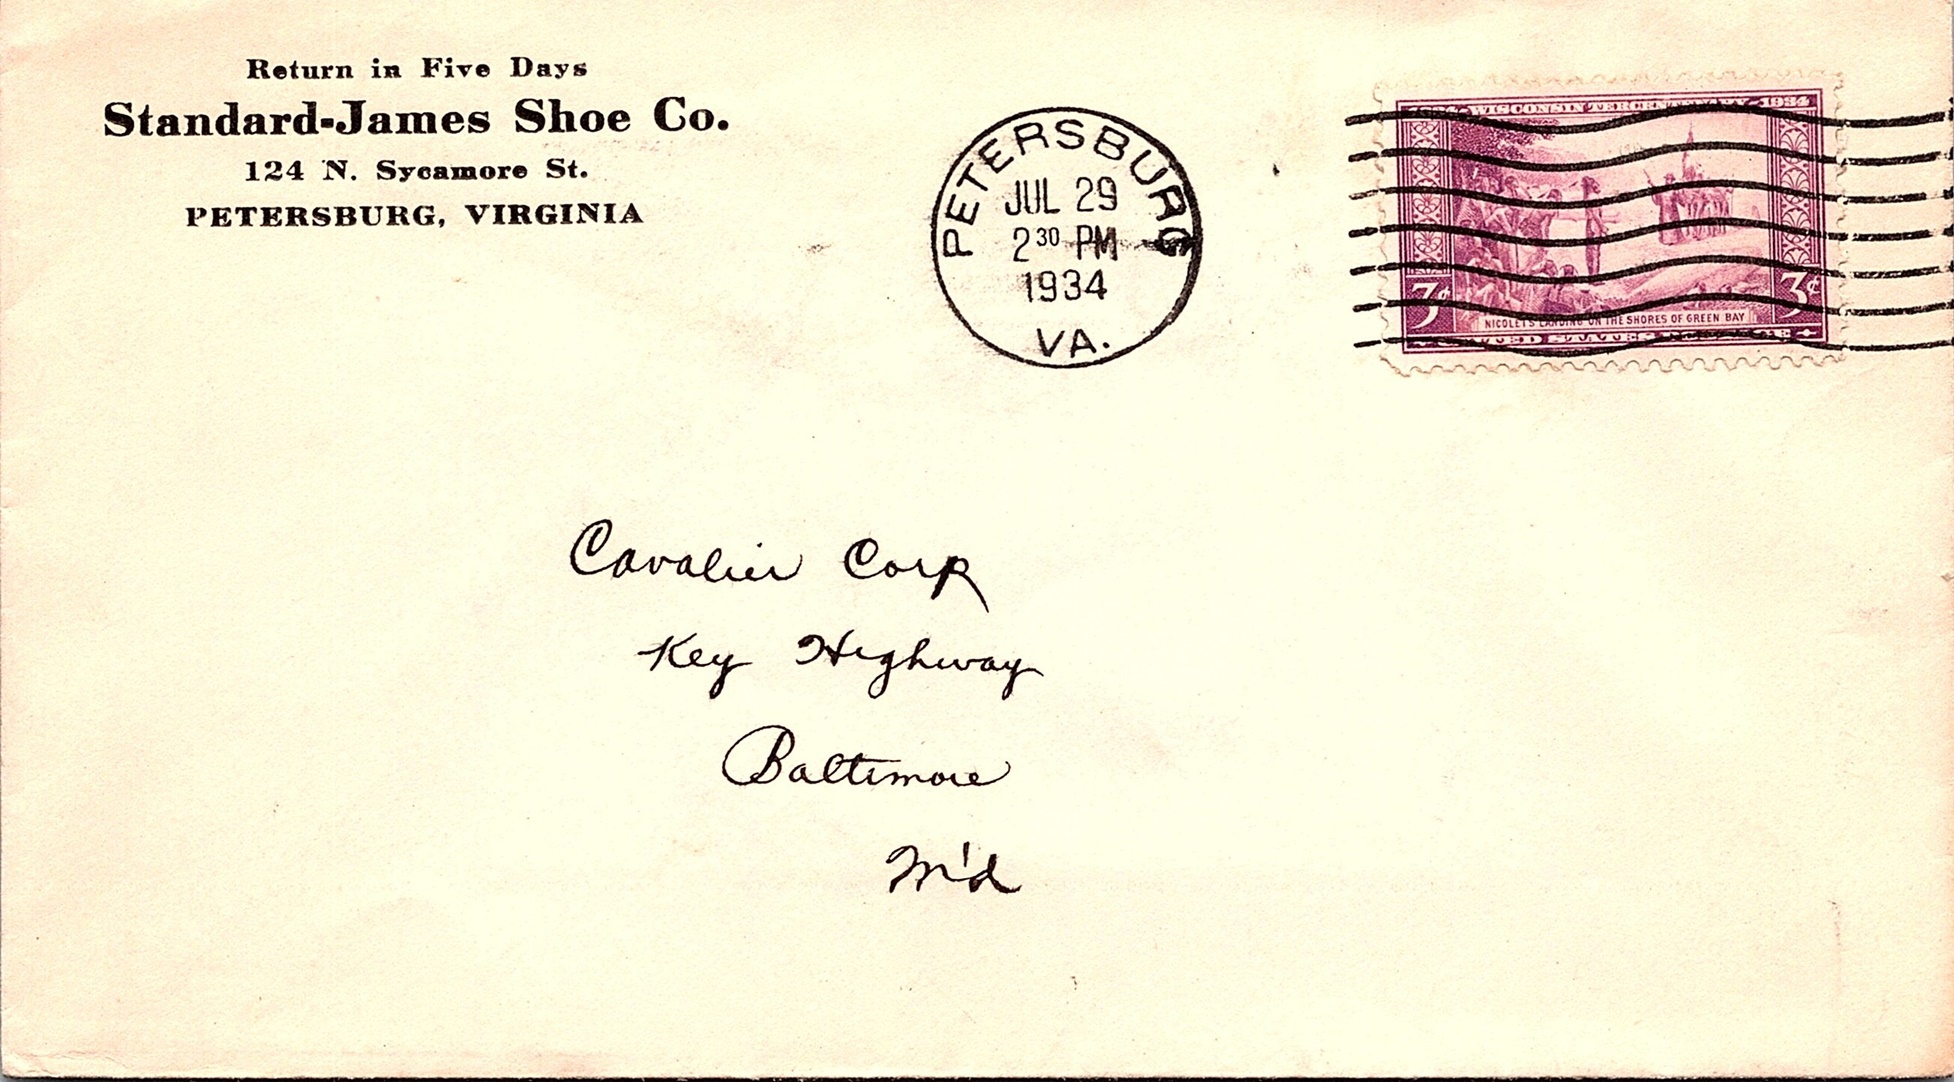 Return in Five Days
Standard-James Shoe Co.
124 N. Sycamore St.
PETERSBURG, VIRGINIA
PETERSBURG
JUL 29
2 30 PM
1934
VA.
WISCONSIN TERCENTENARY 1934
3¢ 3¢
NICOLET'S LANDING ON THE SHORES OF GREEN BAY
UNITED STATES POSTAGE
Cavalier Corp
Key Highway
Baltimore
M'd